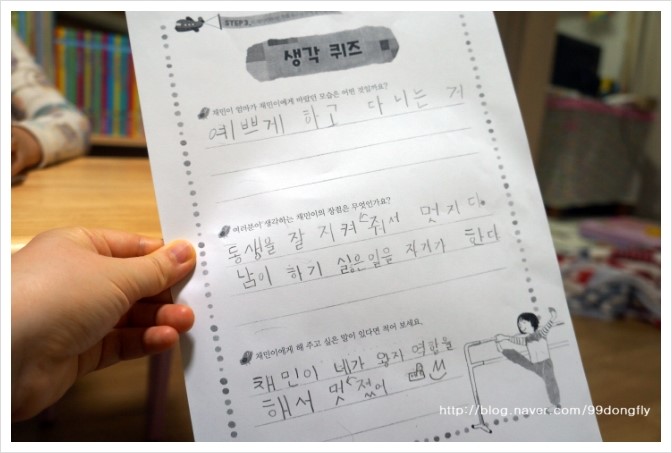 STEP3.
생각 퀴즈
채민이 엄마가 채민이에게 바랐던 모습은 어떤 것일까요?
예쁘게 하고 다니는 거
여러분이 생각하는 채민이의 장점은 무엇인가요?
동생을 잘 지켜줘서 멋지다.
남이 하기 싫은일을 자기가 한다
채민이에게 해 주고 싶은 말이 있다면 적어 보세요.
채민이 네가 왕자 역할을
해서 멋졌어
http://blog.naver.com/99dongfly